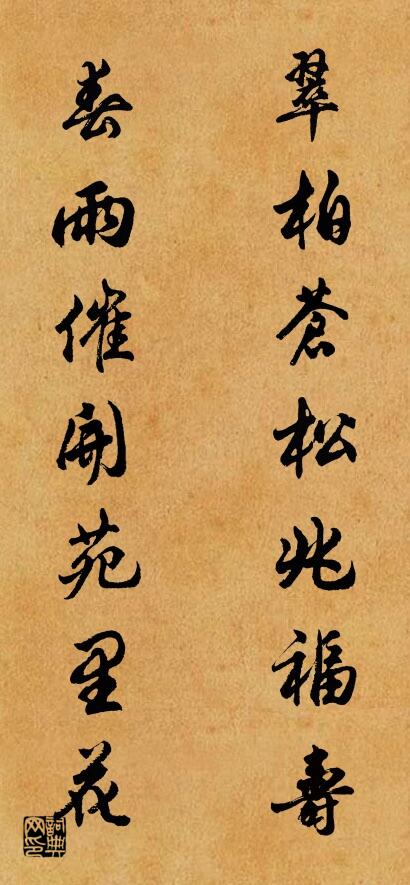 翠柏苍松兆福寿
春雨催開苑里花
詞典网印